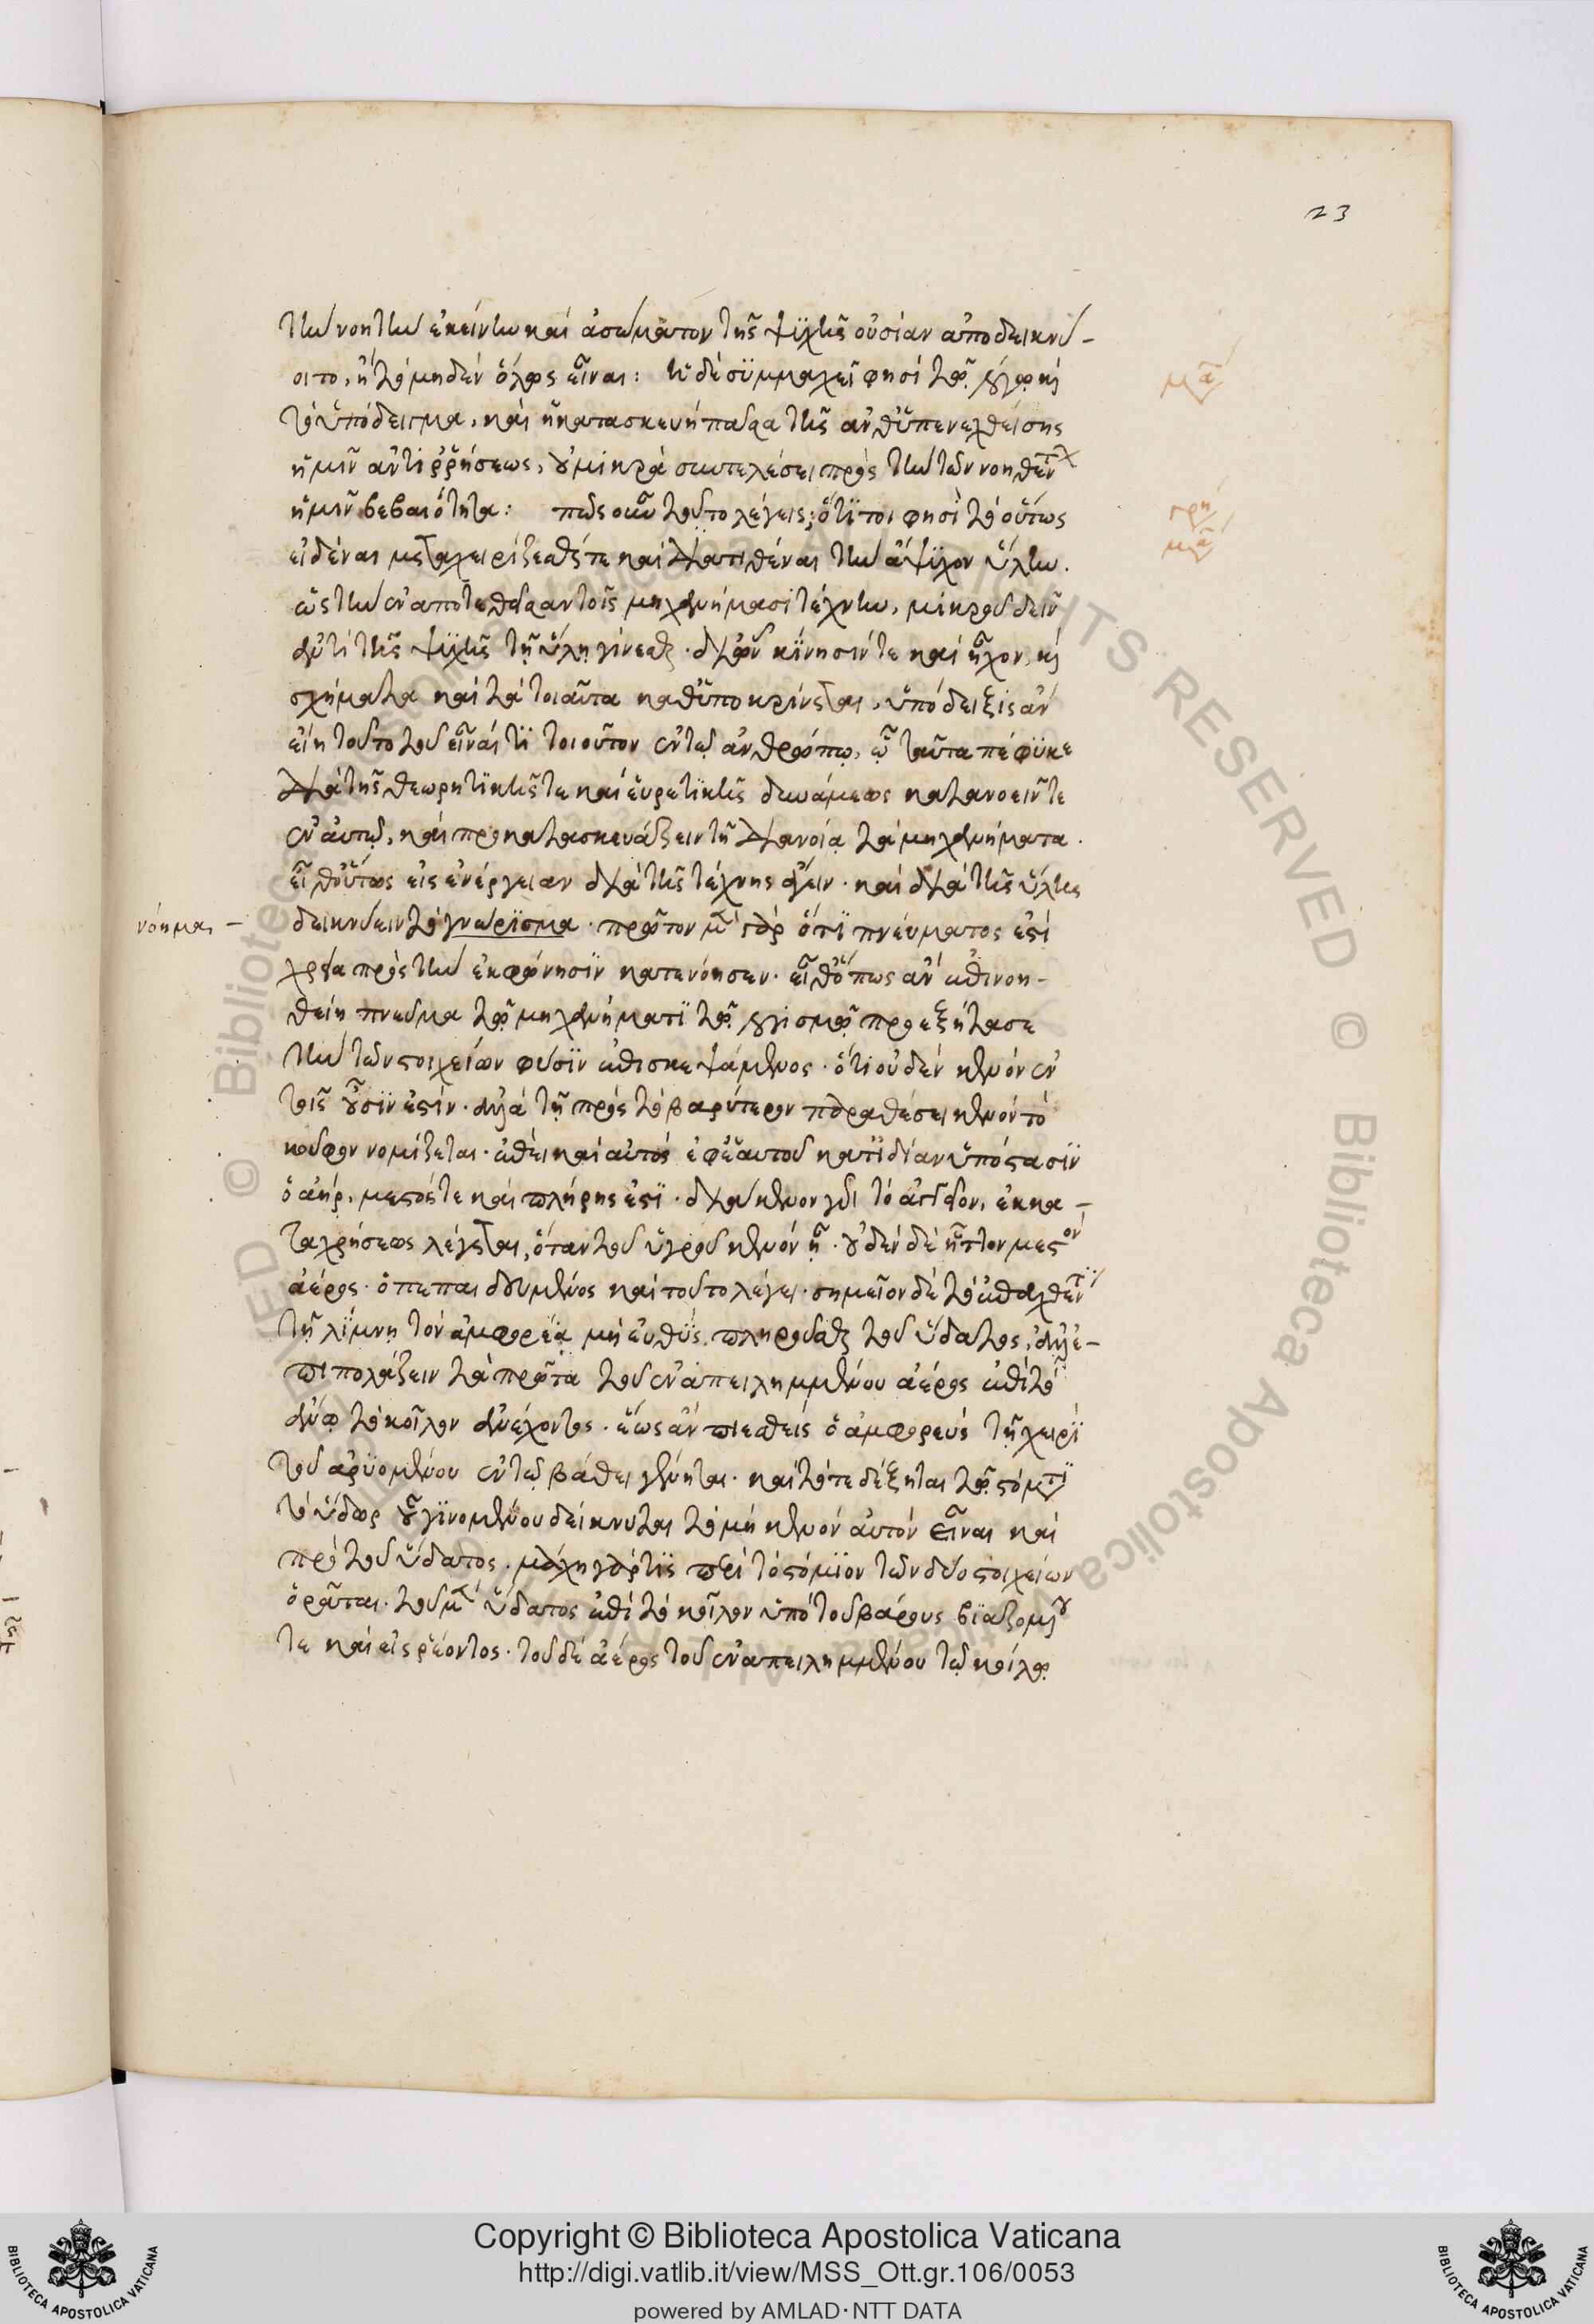 23
τὴν νοητὴν ἐκείνην καὶ ἀσώματον τῆς ψυχῆς οὐσίαν ἀποδεικνύ-
οιτο, ἢ τὸ μηδὲν ὅλως εἶναι: ἡ δὲ συμμαχεῖ φησὶ τῷ λόγῳ καὶ
μα
τὸ ὑπόδειγμα, καὶ ἡ κατασκευὴ πᾶσα τῆς ἀνθυπενεχθείσης
ἡμῖν ἀντιρρήσεως, οὐ μικρὰ συντελέσει πρὸς τὴν τῶν νοηθέντων
ἡμῖν βεβαιότητα: πῶς οὖν τοῦτο λέγεις; ὅτι τοι φησὶ τὸ οὕτως
γρη
μα
εἰδέναι μεταχειρίζεσθαί τε καὶ διατιθέναι τὴν ἄψυχον ὕλην.
ὡς τὴν ἐναποτεθεῖσαν τοῖς μηχανήμασι τέχνην, μικροῦ δεῖν
ἀντὶ τῆς ψυχῆς τῇ ὕλῃ γίνεσθαι. δι' ὧν κίνησίν τε καὶ ἦχον, καὶ
σχήματα καὶ τὰ τοιαῦτα καθυποκρίνεται, ὑπόδειξις ἂν
εἴη τοῦτο τοῦ εἶναί τι τοιοῦτον ἐν τῷ ἀνθρώπῳ, ᾧ ταῦτα πέφυκε
διὰ τῆς θεωρητικῆς τε καὶ εὑρετικῆς δυνάμεως κατανοεῖν τε
ἐν αὐτῷ, καὶ προκατασκευάζειν τῇ διανοίᾳ τὰ μηχανήματα.
εἶθ' οὕτως εἰς ἐνέργειαν διὰ τῆς τέχνης ἄγειν. καὶ διὰ τῆς ὕλης
νόημα, -
δεικνύειν τὸ γνώρισμα. πρῶτον μὲν γὰρ ὅτι πνεύματος ἐστὶ
χρεία πρὸς τὴν ἐκφώνησιν κατενόησεν. εἶθ' ὅπως ἂν ἐπινοη-
θείη πνεῦμα τῷ μηχανήματι τῷ λογισμῷ προεξήτασε
τὴν τῶν στοιχείων φύσιν ἐπισκεψάμενος. ὅτι οὐδὲν κενὸν ἐν
τοῖς οὖσίν ἐστιν. ἀλλὰ τῇ πρὸς τὸ βαρύτερον παραθέσει κενὸν τὸ
κοῦφον νομίζεται. ἐπεὶ καὶ αὐτὸς ἐφ' ἑαυτοῦ κατ' ἰδίαν ὑπόστασιν
ὁ ἀήρ, μεστός τε καὶ πλήρης ἐστί. διὰ κενὸν γὰρ τὸ ἀγγεῖον, ἐκ κα-
ταχρήσεως λέγεται, ὅταν τοῦ ὑγροῦ κενὸν ᾖ. οὐδὲν δὲ ἧττον μεστὸν
ἀέρος. ὁ πεπαιδευμένος καὶ τοῦτο λέγει. σημεῖον δὲ τὸ ἐπαχθέντι
τῇ λίμνῃ τὸν ἀμφορέα μὴ εὐθὺς πληροῦσθαι τοῦ ὕδατος, ἀλλ' ἐ-
πιπολάζειν τὰ πρῶτα τοῦ ἐναπειλημμένου ἀέρος ἐπὶ τὸ
ἄνω τὸ κοῖλον ἀνέχοντος. ἕως ἂν πιεσθεὶς ὁ ἀμφορεὺς τῇ χειρὶ
τοῦ ἀρυομένου ἐν τῷ βάθει γένηται. καὶ τότε δέξηται τῷ στόματι
τὸ ὕδωρ οὗ γινομένου δείκνυται τὸ μὴ κενὸν αὐτὸν εἶναι καὶ
πρὸ τοῦ ὕδατος. μάχη γάρ τις περὶ τὸ στόμιον τῶν δύο στοιχείων
ὁρᾶται. τοῦ μὲν ὕδατος ἐπὶ τὸ κοῖλον ὑπὸ τοῦ βάρους βιαζομένου
τε καὶ εἰσρέοντος. τοῦ δὲ ἀέρος τοῦ ἐναπειλημμένου τῷ κοίλῳ
Copyright © Biblioteca Apostolica Vaticana
http://digi.vatlib.it/view/MSS_Ott.gr.106/0053
powered by AMLAD·NTT DATA
BIBLIOTECA APOSTOLICA VATICANA
BIBLIOTECA APOSTOLICA VATICANA